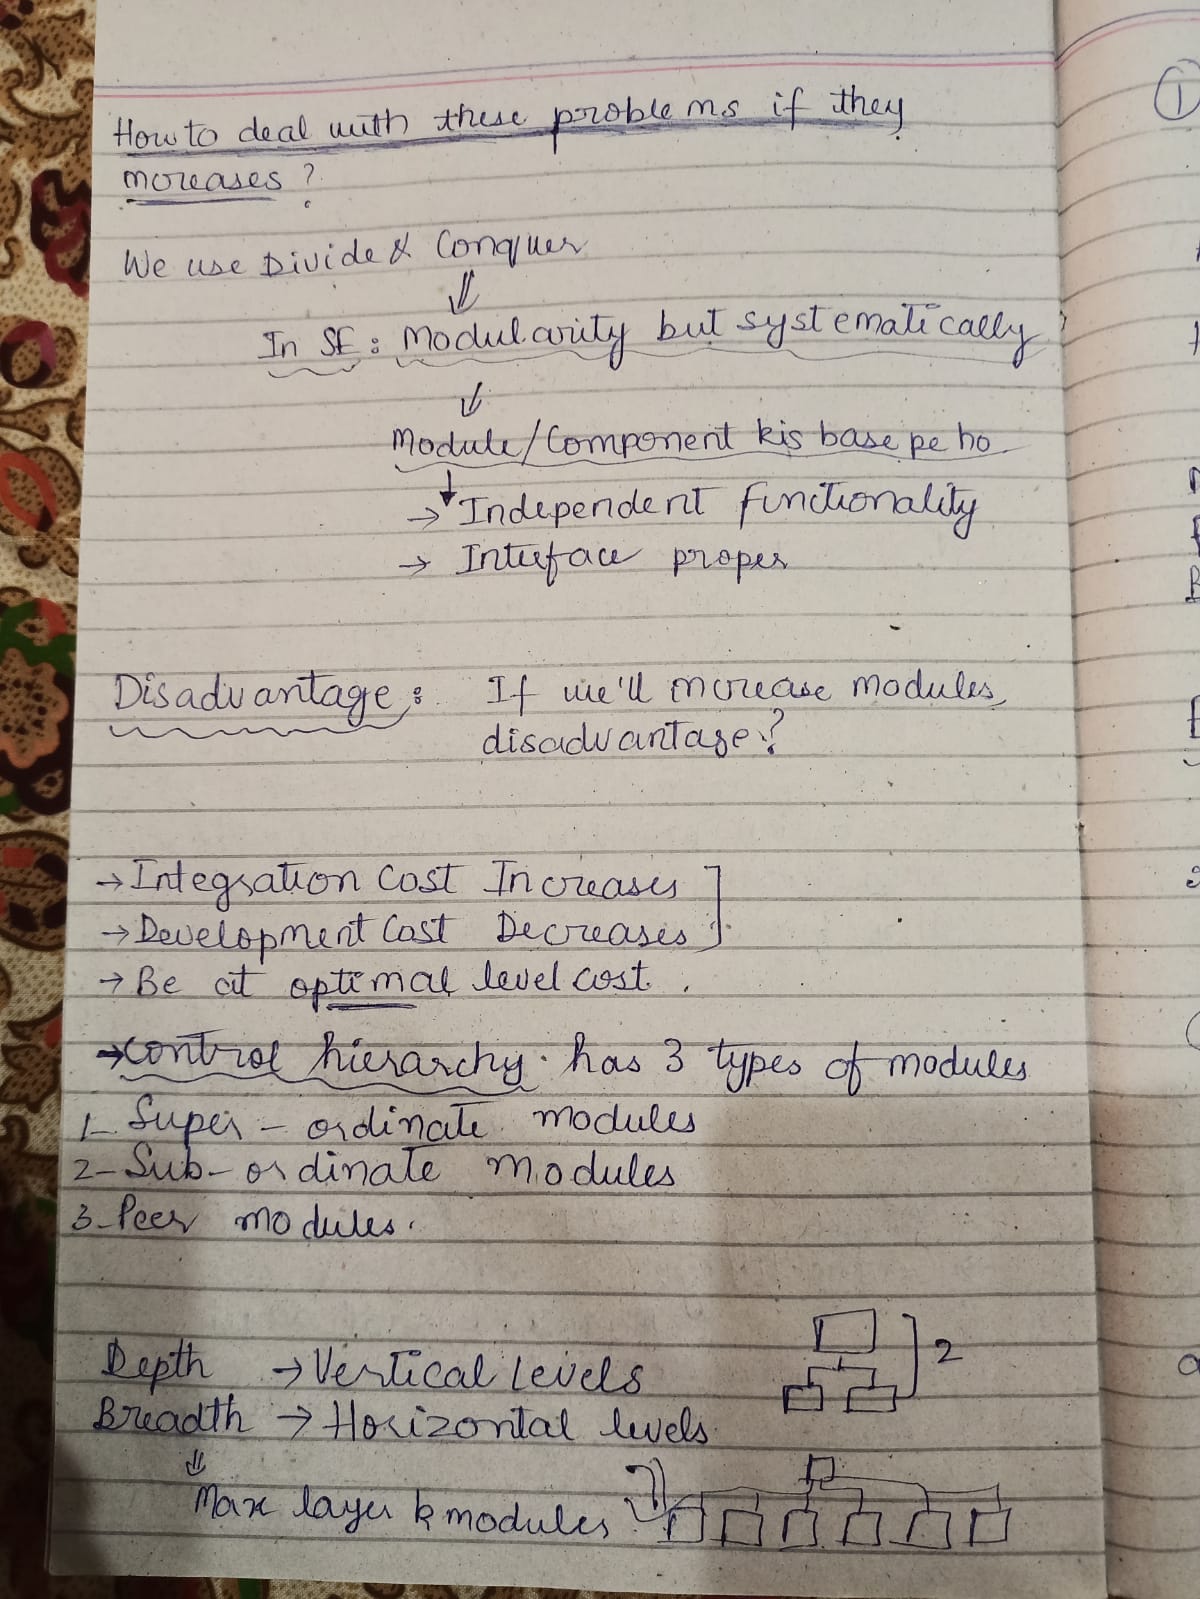 How to deal with these problems if they
increases ?
We use Divide & Conquer
In SE : Modularity but systematically
Module/Component kis base pe ho
→ Independent functionality
→ Interface proper
Disadvantage : If we'll increase modules,
disadvantage ?
→ Integration Cost Increases
→ Development Cost Decreases
→ Be at optimal level cost.
→ Control hierarchy. has 3 types of modules
1- Super - ordinate modules
2- Sub- ordinate modules
3- Peer modules.
Depth → Vertical levels
2
Breadth → Horizontal levels
Max layer k modules